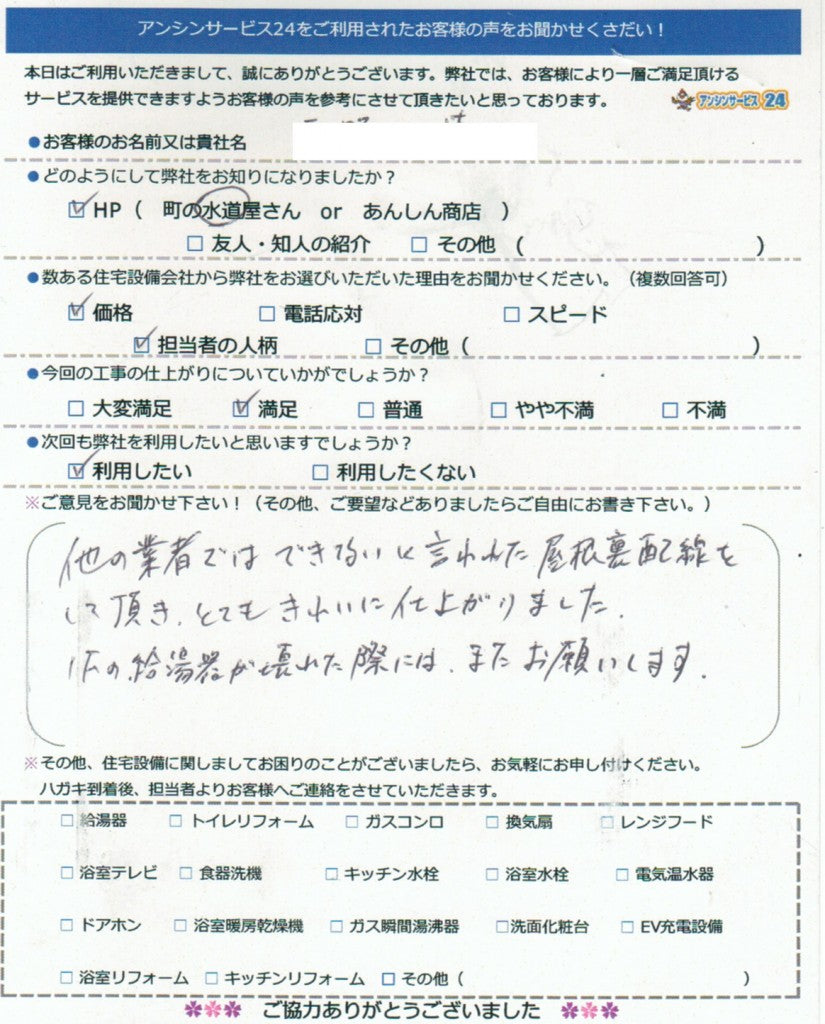 アンシンサービス24をご利用されたお客様の声をお聞かせくさだい！
本日はご利用いただきまして、誠にありがとうございます。弊社では、お客様により一層ご満足頂ける
サービスを提供できますようお客様の声を参考にさせて頂きたいと思っております。
アンシンサービス24
●お客様のお名前又は貴社名
●どのようにして弊社をお知りになりましたか？
☑HP（ 町の水道屋さん or あんしん商店 ）
□ 友人・知人の紹介 □ その他 （ ）
●数ある住宅設備会社から弊社をお選びいただいた理由をお聞かせください。（複数回答可）
☑ 価格 □ 電話応対 □ スピード
☑ 担当者の人柄 □ その他（ ）
●今回の工事の仕上がりについていかがでしょうか？
□ 大変満足 ☑ 満足 □ 普通 □ やや不満 □ 不満
●次回も弊社を利用したいと思いますでしょうか？
☑ 利用したい □ 利用したくない
※ご意見をお聞かせ下さい！（その他、ご要望などありましたらご自由にお書き下さい。）
他の業者ではできないと言われた屋根裏配線を
して頂き、とてもきれいに仕上がりました。
1Fの給湯器が壊れた際には、またお願いします。
※その他、住宅設備に関しましてお困りのことがございましたら、お気軽にお申し付けください。
ハガキ到着後、担当者よりお客様へご連絡をさせていただきます。
□ 給湯器 □ トイレリフォーム □ ガスコンロ □ 換気扇 □ レンジフード
□ 浴室テレビ □ 食器洗機 □ キッチン水栓 □ 浴室水栓 □ 電気温水器
□ ドアホン □ 浴室暖房乾燥機 □ ガス瞬間湯沸器 □洗面化粧台 □ EV充電設備
□ 浴室リフォーム □ キッチンリフォーム □ その他（ ）
ご協力ありがとうございました